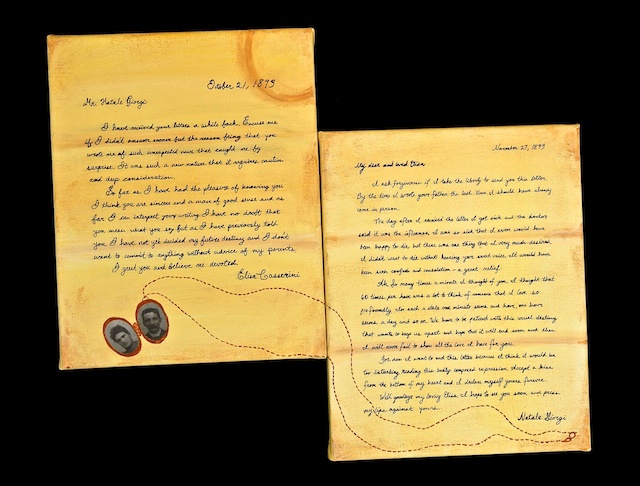 October 21, 1893
Mr. Natale Giorgi
I have received your letters a while back. Excuse me
if I didn't answer sooner but the reason being that you
wrote me of such unexpected news that caught me by
surprise. It was such a new nature that it requires caution
and deep consideration.
So far as I have had the pleasure of knowing you
I think you are sincere and a man of good sense and as
far I can interpret your writing I have no doubt that
you mean what you say but as I have previously told
you I have not yet decided my future destiny and I don't
want to commit to anything without advice of my parents
I greet you and believe me devoted.
Elisa Casserini
November 27, 1893
My dear and loved Elisa,
I ask forgiveness if I take the liberty to send you this letter.
By the time I wrote your father the last time I should have already
come in person.
The day after I received the letter I got sick and the doctors
said it was the I was so sick that I even would have
been happy to die, but there was one thing that I very much desired.
I didn't want to die without hearing your sweet voice, it would have
been even comfort and consolation - a great relief.
Oh, So many times a minute I thought of you. I thought that
60 times per hour was a lot to think of someone that I love so
profoundly also such a date one minute same and hour, one hour
same a day and so on. We have to be patient with this cruel destiny
that wants to keep us apart and hope that it will end soon and then
I will never fail to show all the love I have for you.
For now I want to end this letter because I think it would be
too disturbing reading this badly composed expression. Accept a kiss
from the bottom of my heart and I declare myself yours forever.
Well goodbye my loving Elisa, I hope to see you soon and press
my lips against yours.
Natale Giorgi